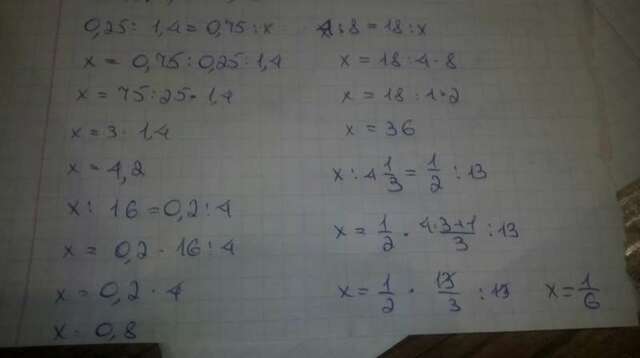 0,25 : 1,4 = 0,75 : x
x = 0,75 : 0,25 · 1,4
x = 75 : 25 · 1,4
x = 3 · 1,4
x = 4,2
x : 16 = 0,2 : 4
x = 0,2 · 16 : 4
x = 0,2 · 4
x - 0,8
4 : 8 = 18 : x
x = 18 : 4 · 8
x = 18 : 1 · 2
x = 36
x : 4 1/3 = 1/2 : 13
x = 1/2 · (4·3+1)/3 : 13
x = 1/2 · 13/3 : 13 x = 1/6